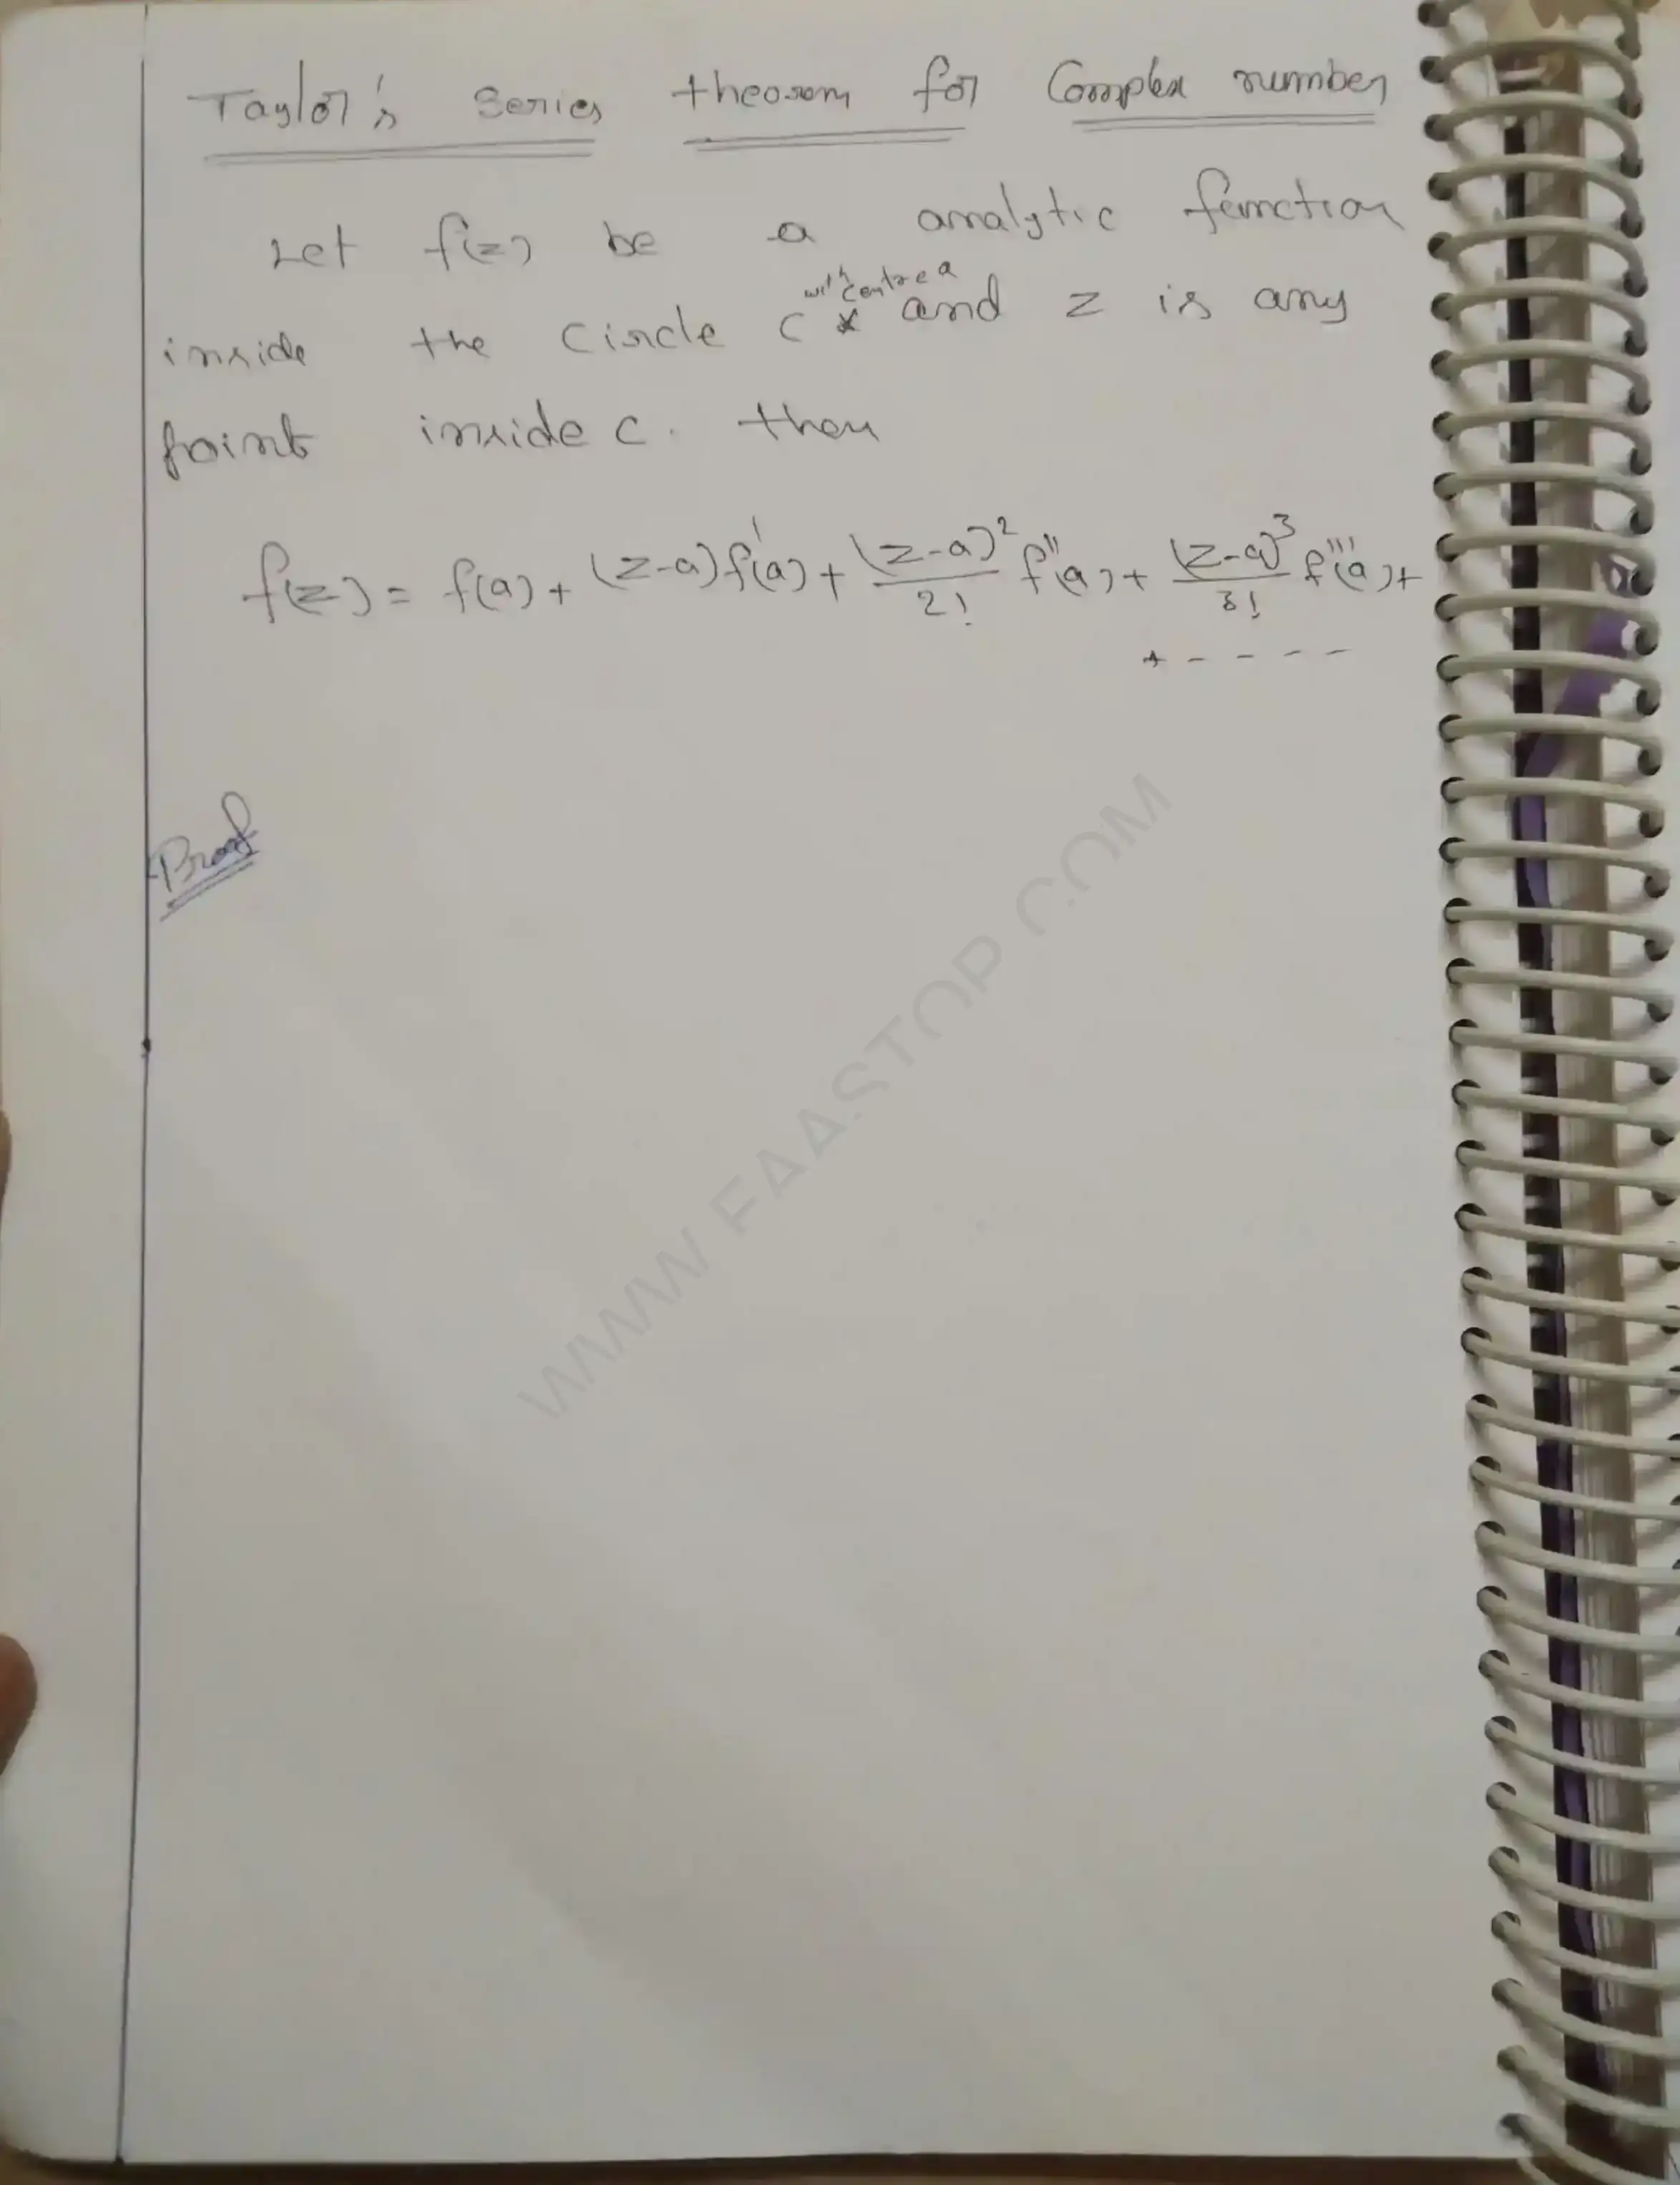 Taylor's series theorem for Complex number
Let f(z) be a analytic function
with centre a
inside the Circle C and z is any
point inside C. then
f(z) = f(a) + (z-a)f'(a) + (z-a)²/2! f''(a) + (z-a)³/3! f'''(a) +
+ - - - -
Proof
WWW.FAASTOP.COM